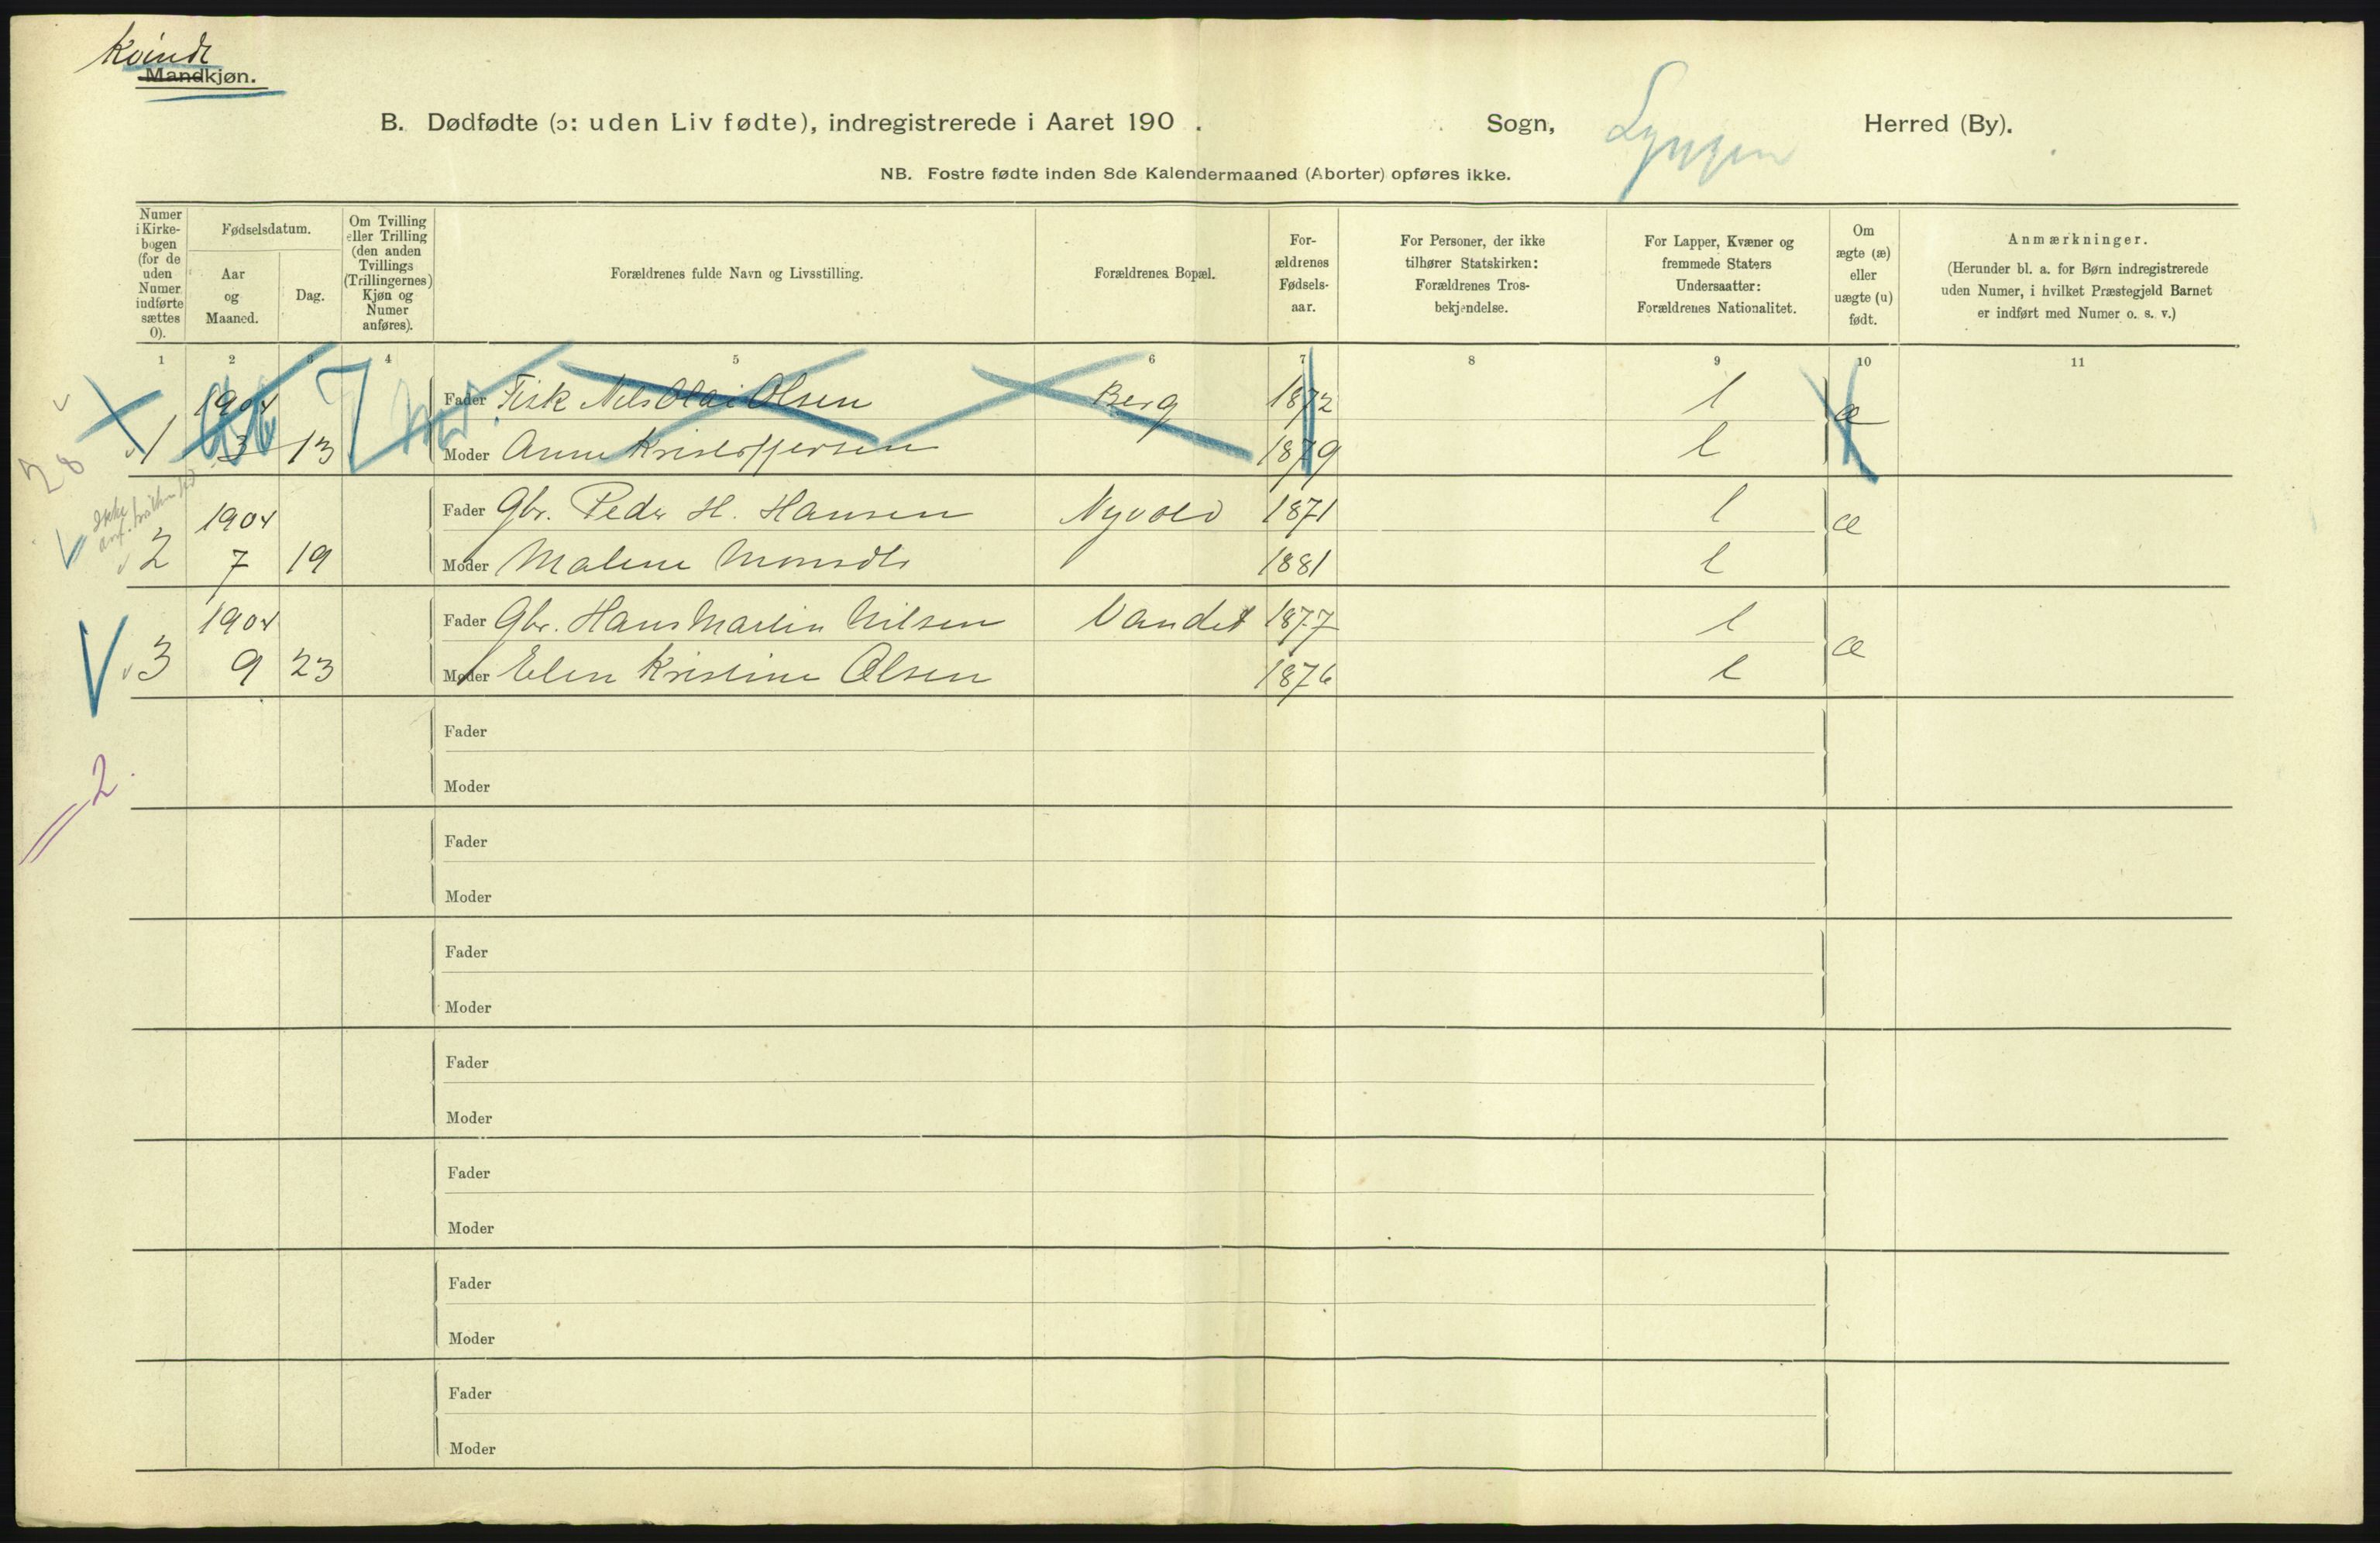 Kvinde
Mandkjøn.
B. Dødfødte (ɔ: uden Liv fødte), indregistrerede i Aaret 190 .
Sogn, Lyngen Herred (By).
NB. Fostre fødte inden 8de Kalendermaaned (Aborter) opføres ikke.
Numer
i Kirke-
bogen
(for de
uden
Numer
indførte
sættes
0).
Fødselsdatum.
Aar
og
Maaned.
Dag.
Om Tvilling
eller Trilling
(den anden
Tvillings
(Trillingernes)
Kjøn og
Numer
anføres).
Forældrenes fulde Navn og Livsstilling.
Forældrenes Bopæl.
For-
ældrenes
Fødsels-
aar.
For Personer, der ikke
tilhører Statskirken:
Forældrenes Tros-
bekjendelse.
For Lapper, Kvæner og
fremmede Staters
Undersaatter:
Forældrenes Nationalitet.
Om
ægte (æ)
eller
uægte (u)
født.
Anmærkninger.
(Herunder bl. a. for Børn indregistrerede
uden Numer, i hvilket Præstegjeld Barnet
er indført med Numer o. s. v.)
1 2 3 4 5 6 7 8 9 10 11
1904 Fader Fisk Nils Olai Olsen Berg 1872 l æ
1 3 13 Moder Anne Kristoffersen 1879 l
28
Ikke
1904 Fader Gbr. Peder H. Hansen Nyvold 1871 l æ
2 7 19 Moder Malene 1881 l
1904 Fader Gbr. Hans Martin Nilsen Vandet 1877 l æ
3 9 23 Moder Elen Kristine Olsen 1876 l
2
Fader
Moder
Fader
Moder
Fader
Moder
Fader
Moder
Fader
Moder
Fader
Moder
Fader
Moder